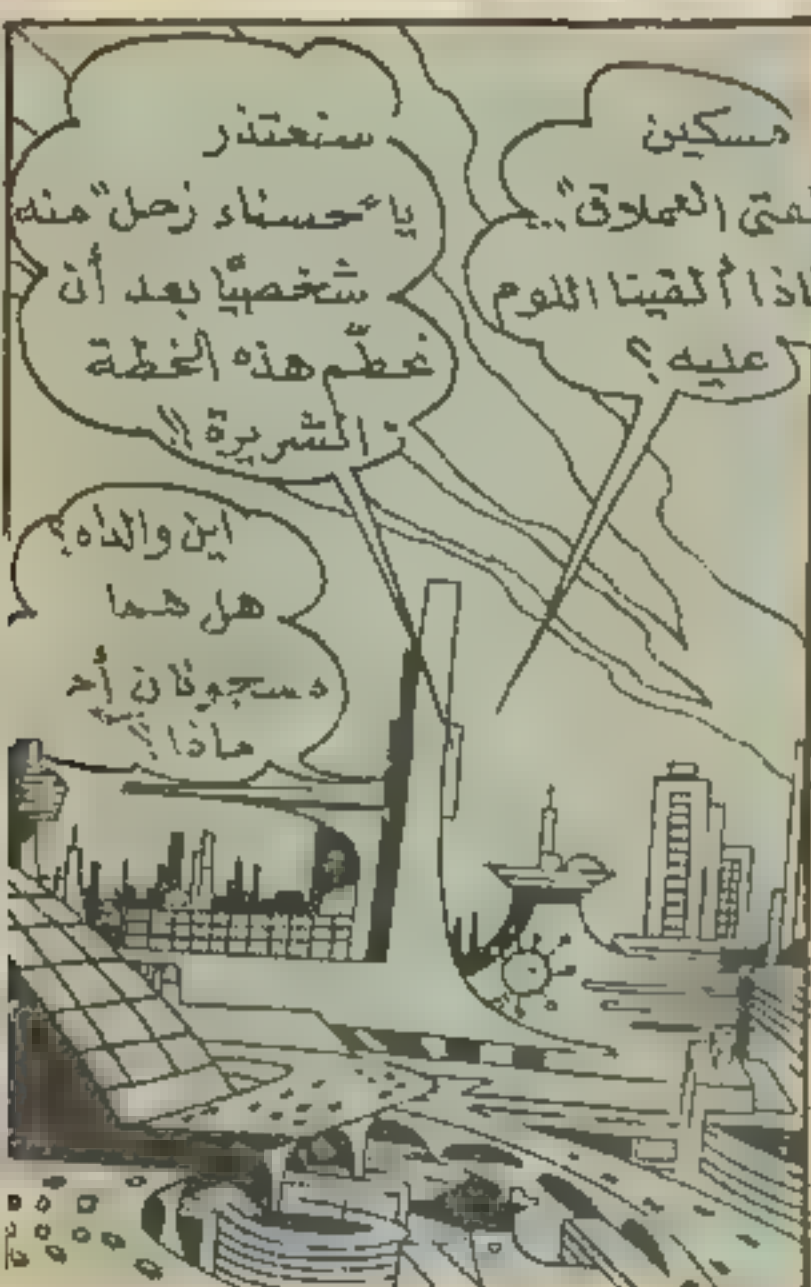 مسكين
العملاق"..
ألقينا اللوم
عليه؟
سنعتذر
يا "حسناء زحل" منه
شخصيًّا بعد أن
نحطّم هذه الخطة
الشريرة!!
اين والداه؟
هل هما
مسجونان أم
ماذا؟